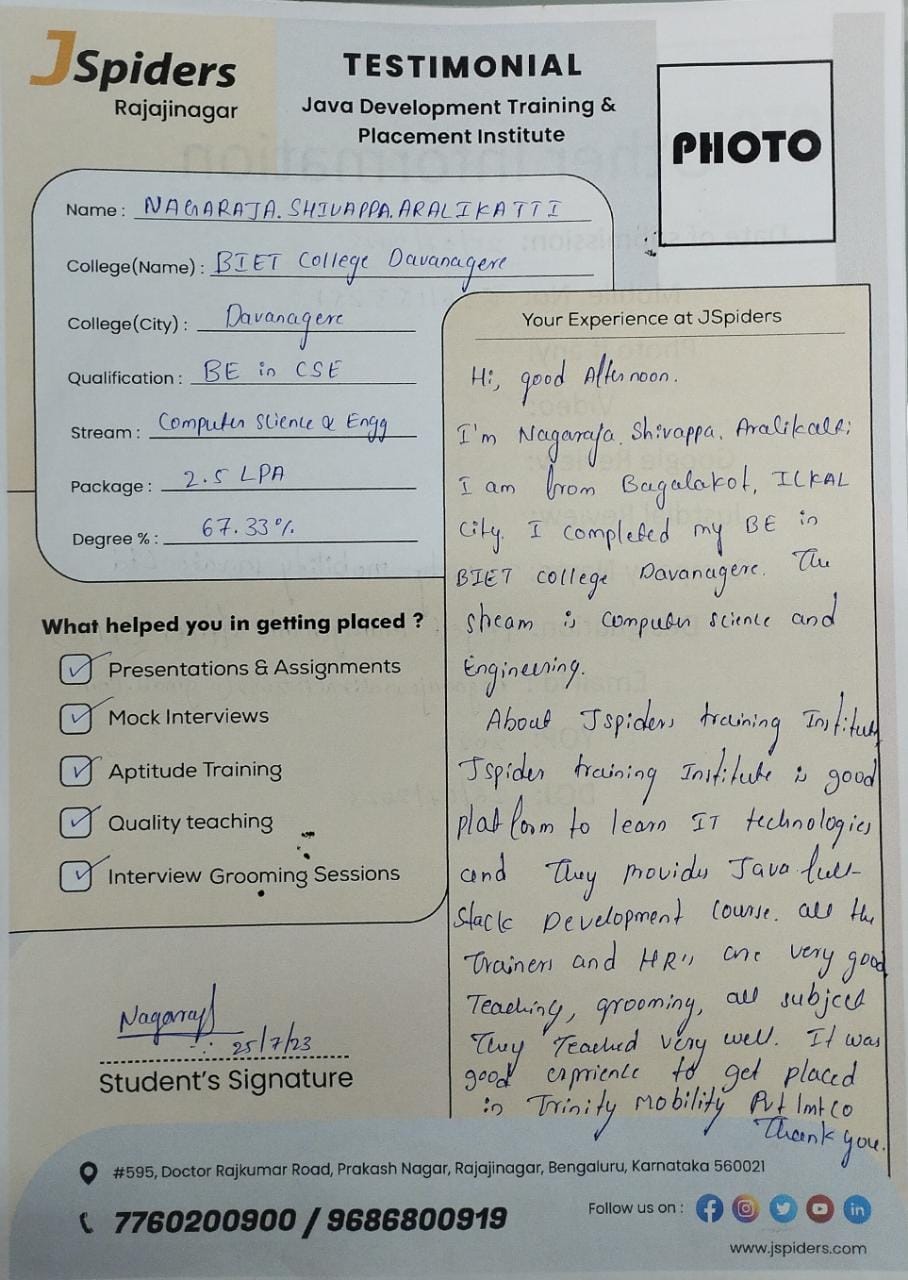 JSpiders
Rajajinagar
TESTIMONIAL
Java Development Training &
Placement Institute
PHOTO
Name : NAGARAJA. SHIVAPPA. ARALIKATTI
College(Name) : BIET College Davanagere
College(City) : Davanagere
Qualification : BE in CSE
Stream : Computer Science & Engg
Package : 2.5 LPA
Degree % : 67.33%
What helped you in getting placed ?
Presentations & Assignments
Mock Interviews
Aptitude Training
Quality teaching
Interview Grooming Sessions
Nagaraj
25/7/23
Student's Signature
Your Experience at JSpiders
Hi, good Afternoon.
I'm Nagaraja. Shivappa. Aralikatti
I am from Bagalakot, ILKAL
city. I completed my BE in
BIET college Davanagere. The
stream is computer science and
Engineering.
About Jspiders training Institute
Jspider training Institute is good
platform to learn IT technologies
and They provides Java full-
stack Development course. all the
Trainers and HR's are very good
Teaching, grooming, all subject
They Teached very well. It was
good exprience to get placed
in Trinity mobility Pvt lmt co
Thank you.
#595, Doctor Rajkumar Road, Prakash Nagar, Rajajinagar, Bengaluru, Karnataka 560021
7760200900 / 9686800919
Follow us on :
www.jspiders.com